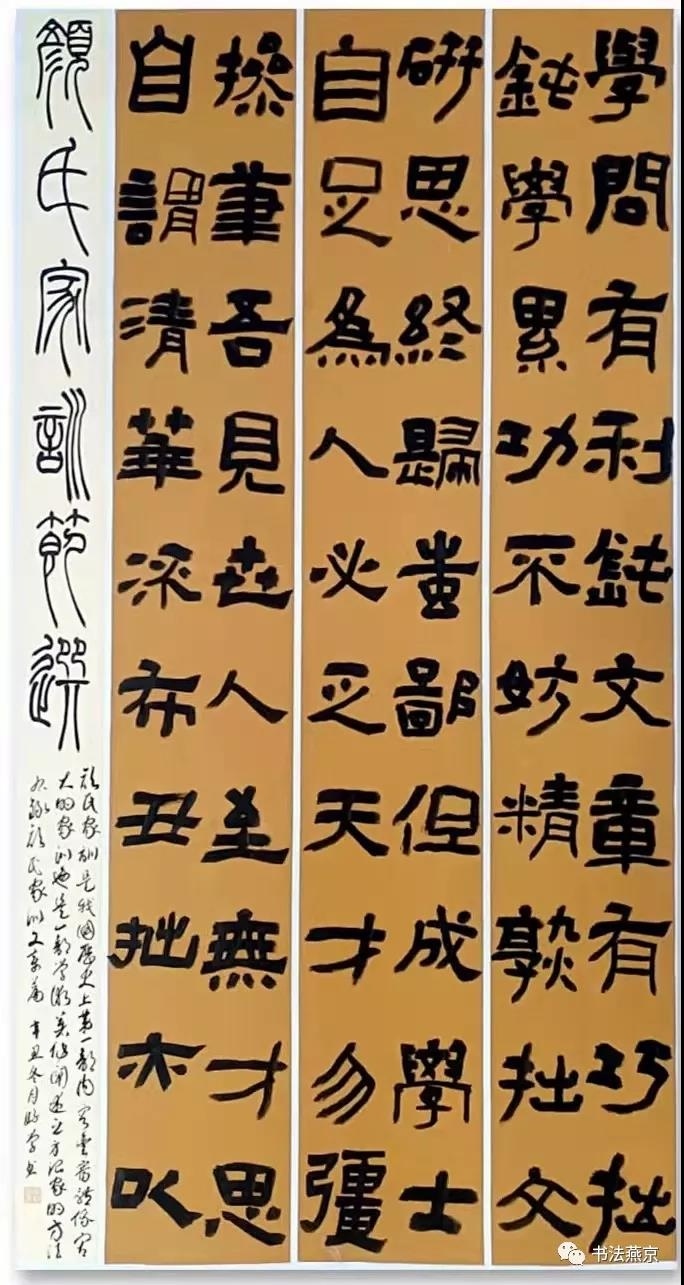 學問有利鈍文章有巧拙
鈍學累功不妨精熟拙文
研思終歸蚩鄙但成學士
自足為人必乏天才勿彊
操筆吾見世人至無才思
自謂清華流布丑拙亦以
顏氏家訓節選
颜氏家训是我国历史上第一部内容丰富体系宏
大的家训也是一部学术著作阐述立身治家的方法
录颜氏家训文章篇 辛丑冬月 书
书法燕京